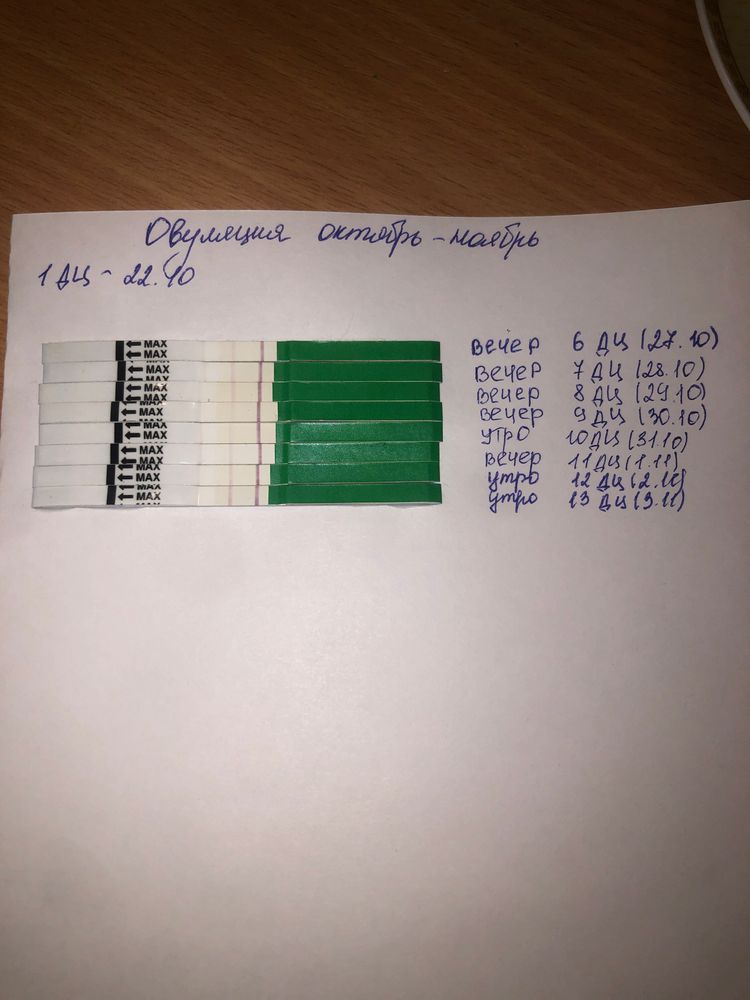 Овуляция октябрь - ноябрь
1 ДЦ - 22.10
MAX
MAX вечер 6 ДЦ (27.10)
MAX вечер 7 ДЦ (28.10)
MAX вечер 8 ДЦ (29.10)
MAX вечер 9 ДЦ (30.10)
MAX утро 10 ДЦ (31.10)
MAX вечер 11 ДЦ (1.11)
MAX утро 12 ДЦ (2.11)
MAX утро 13 ДЦ (3.11)